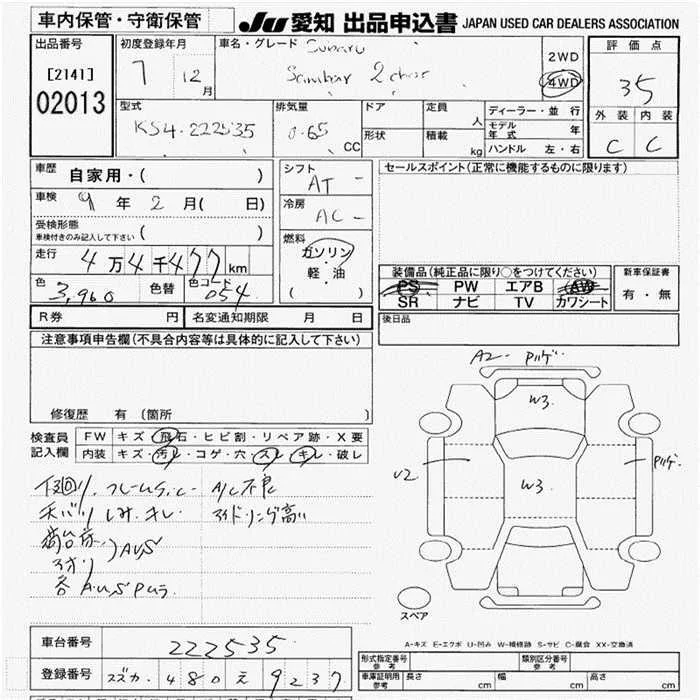 車内保管・守衛保管
JU 愛知 出品申込書 JAPAN USED CAR DEALERS ASSOCIATION
出品番号
[2141]
02013
初度登録年月
7 12月
車名・グレード Subaru
Sambar
2WD
4WD
評価点
35
外装 内装
C C
型式
KS4-222535
排気量
0.65 CC
ドア
形状
定員 人
積載 kg
ディーラー・並行
モデル年式 年
ハンドル 左・右
車歴 自家用・( )
車検 9年 2月( 日)
受検形態
車検付きのみ記入して下さい ( )
走行 4万4千477km
色 3,960 色替 色コード 054
シフト
AT
冷房
AC
燃料
ガソリン
軽・油
( )
セールスポイント(正常に機能するものに限ります)
装備品(純正品に限り○をつけてください)
PS PW エアB AW
SR ナビ TV カワシート
新車保証書
有・無
R券 円 名変通知期限 月 日
後日品
注意事項申告欄(不具合内容等は具体的に記入して下さい)
修復歴 有 (箇所 )
検査員記入欄
FW キズ・飛石・ヒビ割・リペア跡・X要
内装 キズ・汚れ・コゲ・穴・スレ・キレ・破レ
下回り、フレームS.C
A/C不良
天バリ シミ、キレ
アイドリング高い
荷台床
アオリ
AUS
各 A.U.S Pムラ
A2
W3
U2
W3
スペア
A-キズ E-エクボ U-凹み W-補修跡 S-サビ C-腐食 XX-交換済
車台番号 222535
登録番号 スズカ 480 え 9237
形式指定番号 参考
類別区分番号 参考
車庫証明用 参考
長さ cm 幅 cm 高さ cm